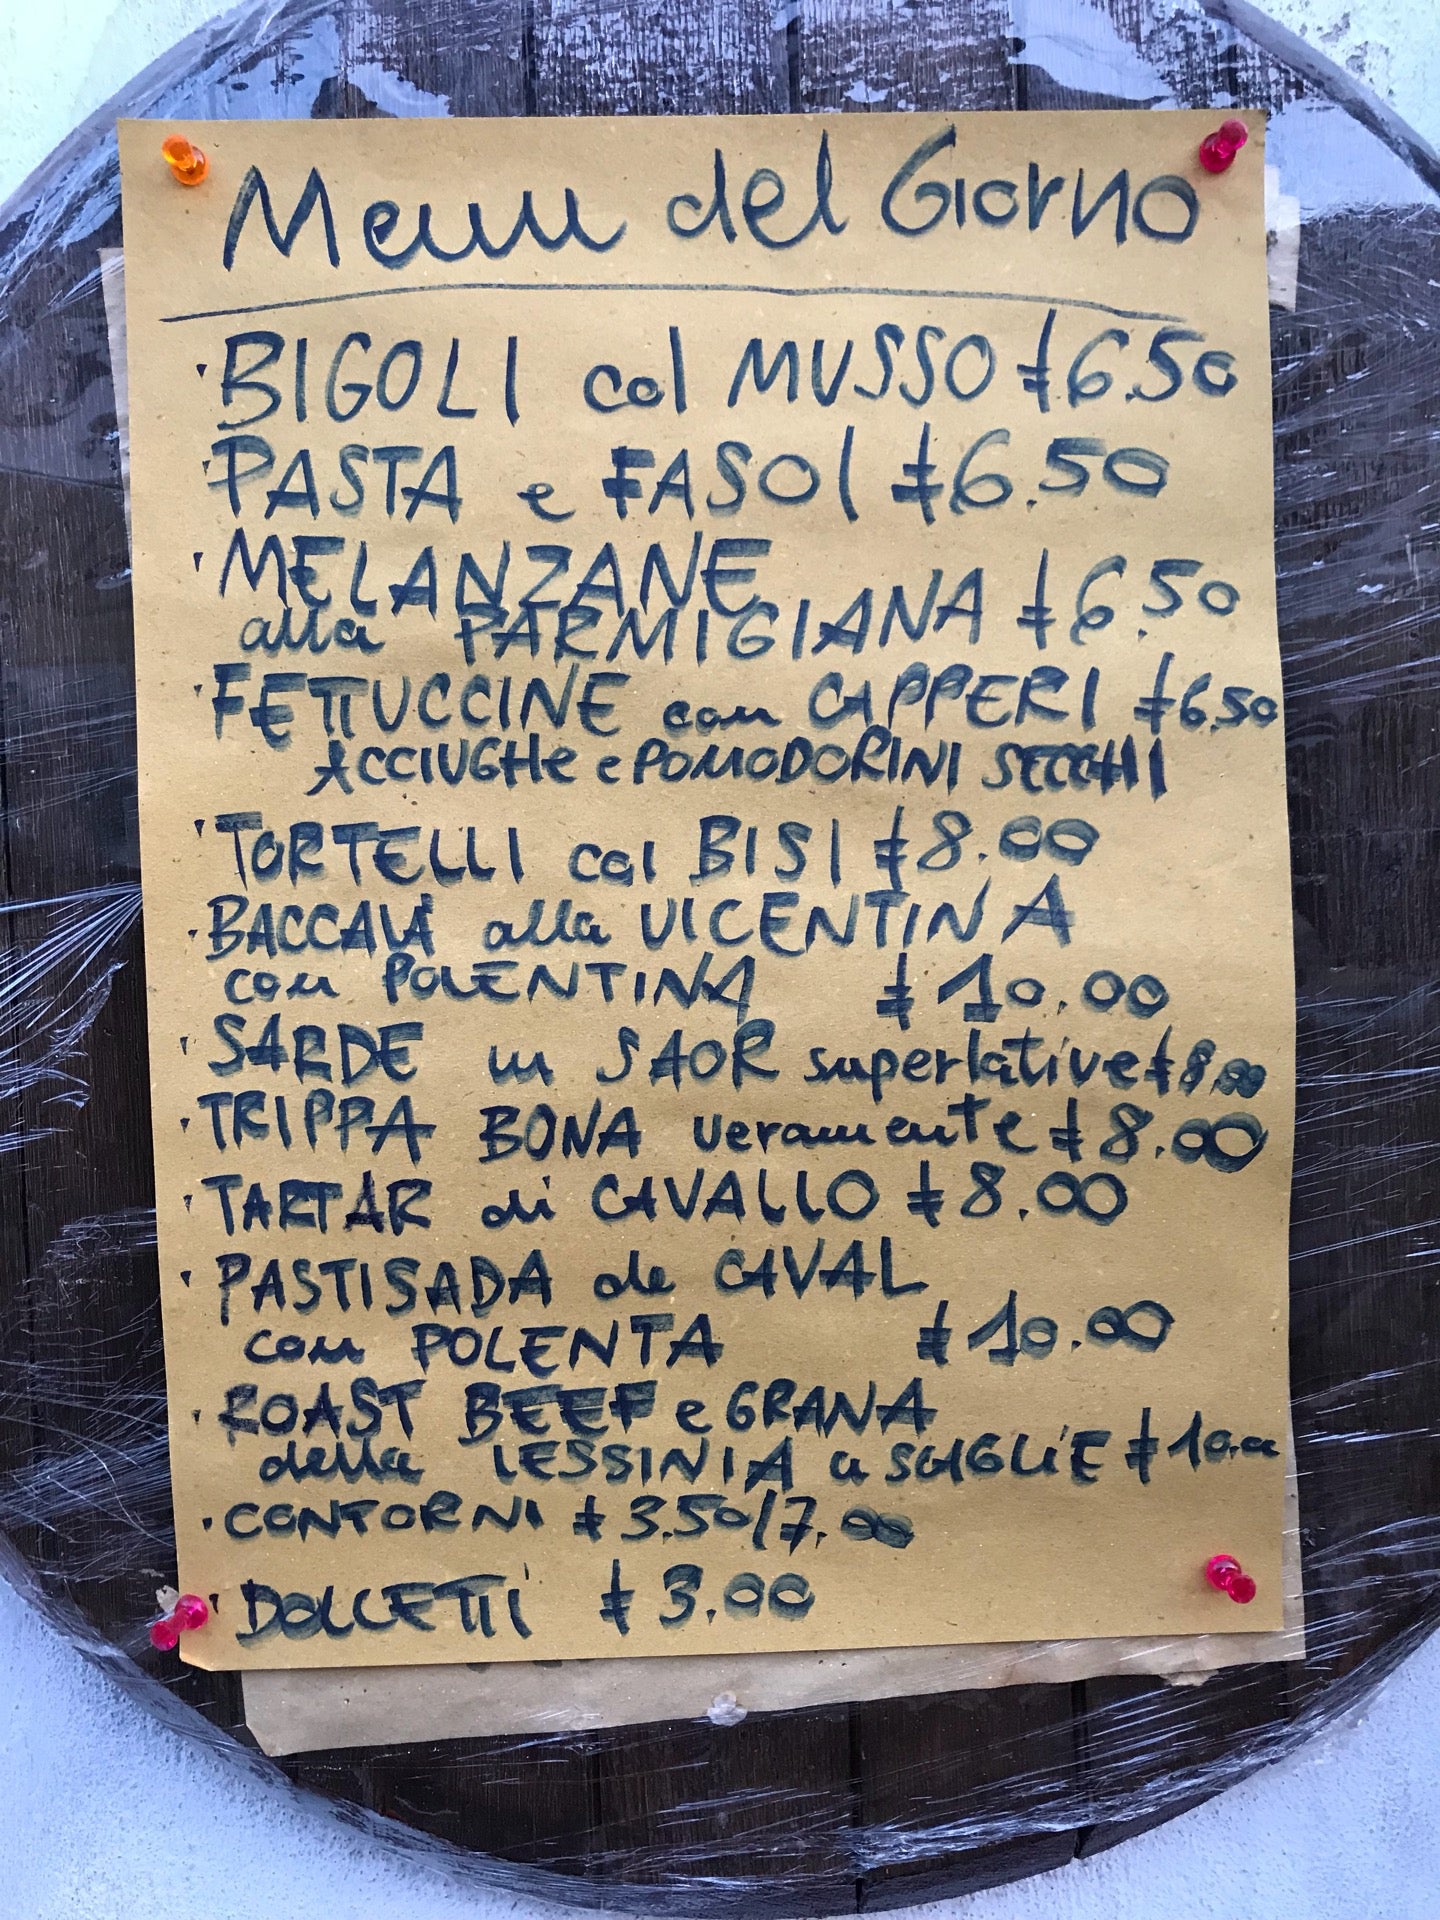 Menu del Giorno
· BIGOLI col MUSSO € 6.50
· PASTA e FASOI € 6.50
· MELANZANE
alla PARMIGIANA € 6.50
· FETTUCCINE con CAPPERI € 6.50
ACCIUGHE e POMODORINI SECCHI
· TORTELLI coi BISI € 8.00
· BACCALÀ alla VICENTINA
con POLENTINA € 10.00
· SARDE in SAOR superlative € 8.00
· TRIPPA BONA veramente € 8.00
· TARTAR di CAVALLO € 8.00
· PASTISADA de CAVAL
con POLENTA € 10.00
· ROAST BEEF e GRANA
della LESSINIA a SCAGLIE € 10.00
· CONTORNI € 3.50/7.00
· DOLCETTI € 3.00